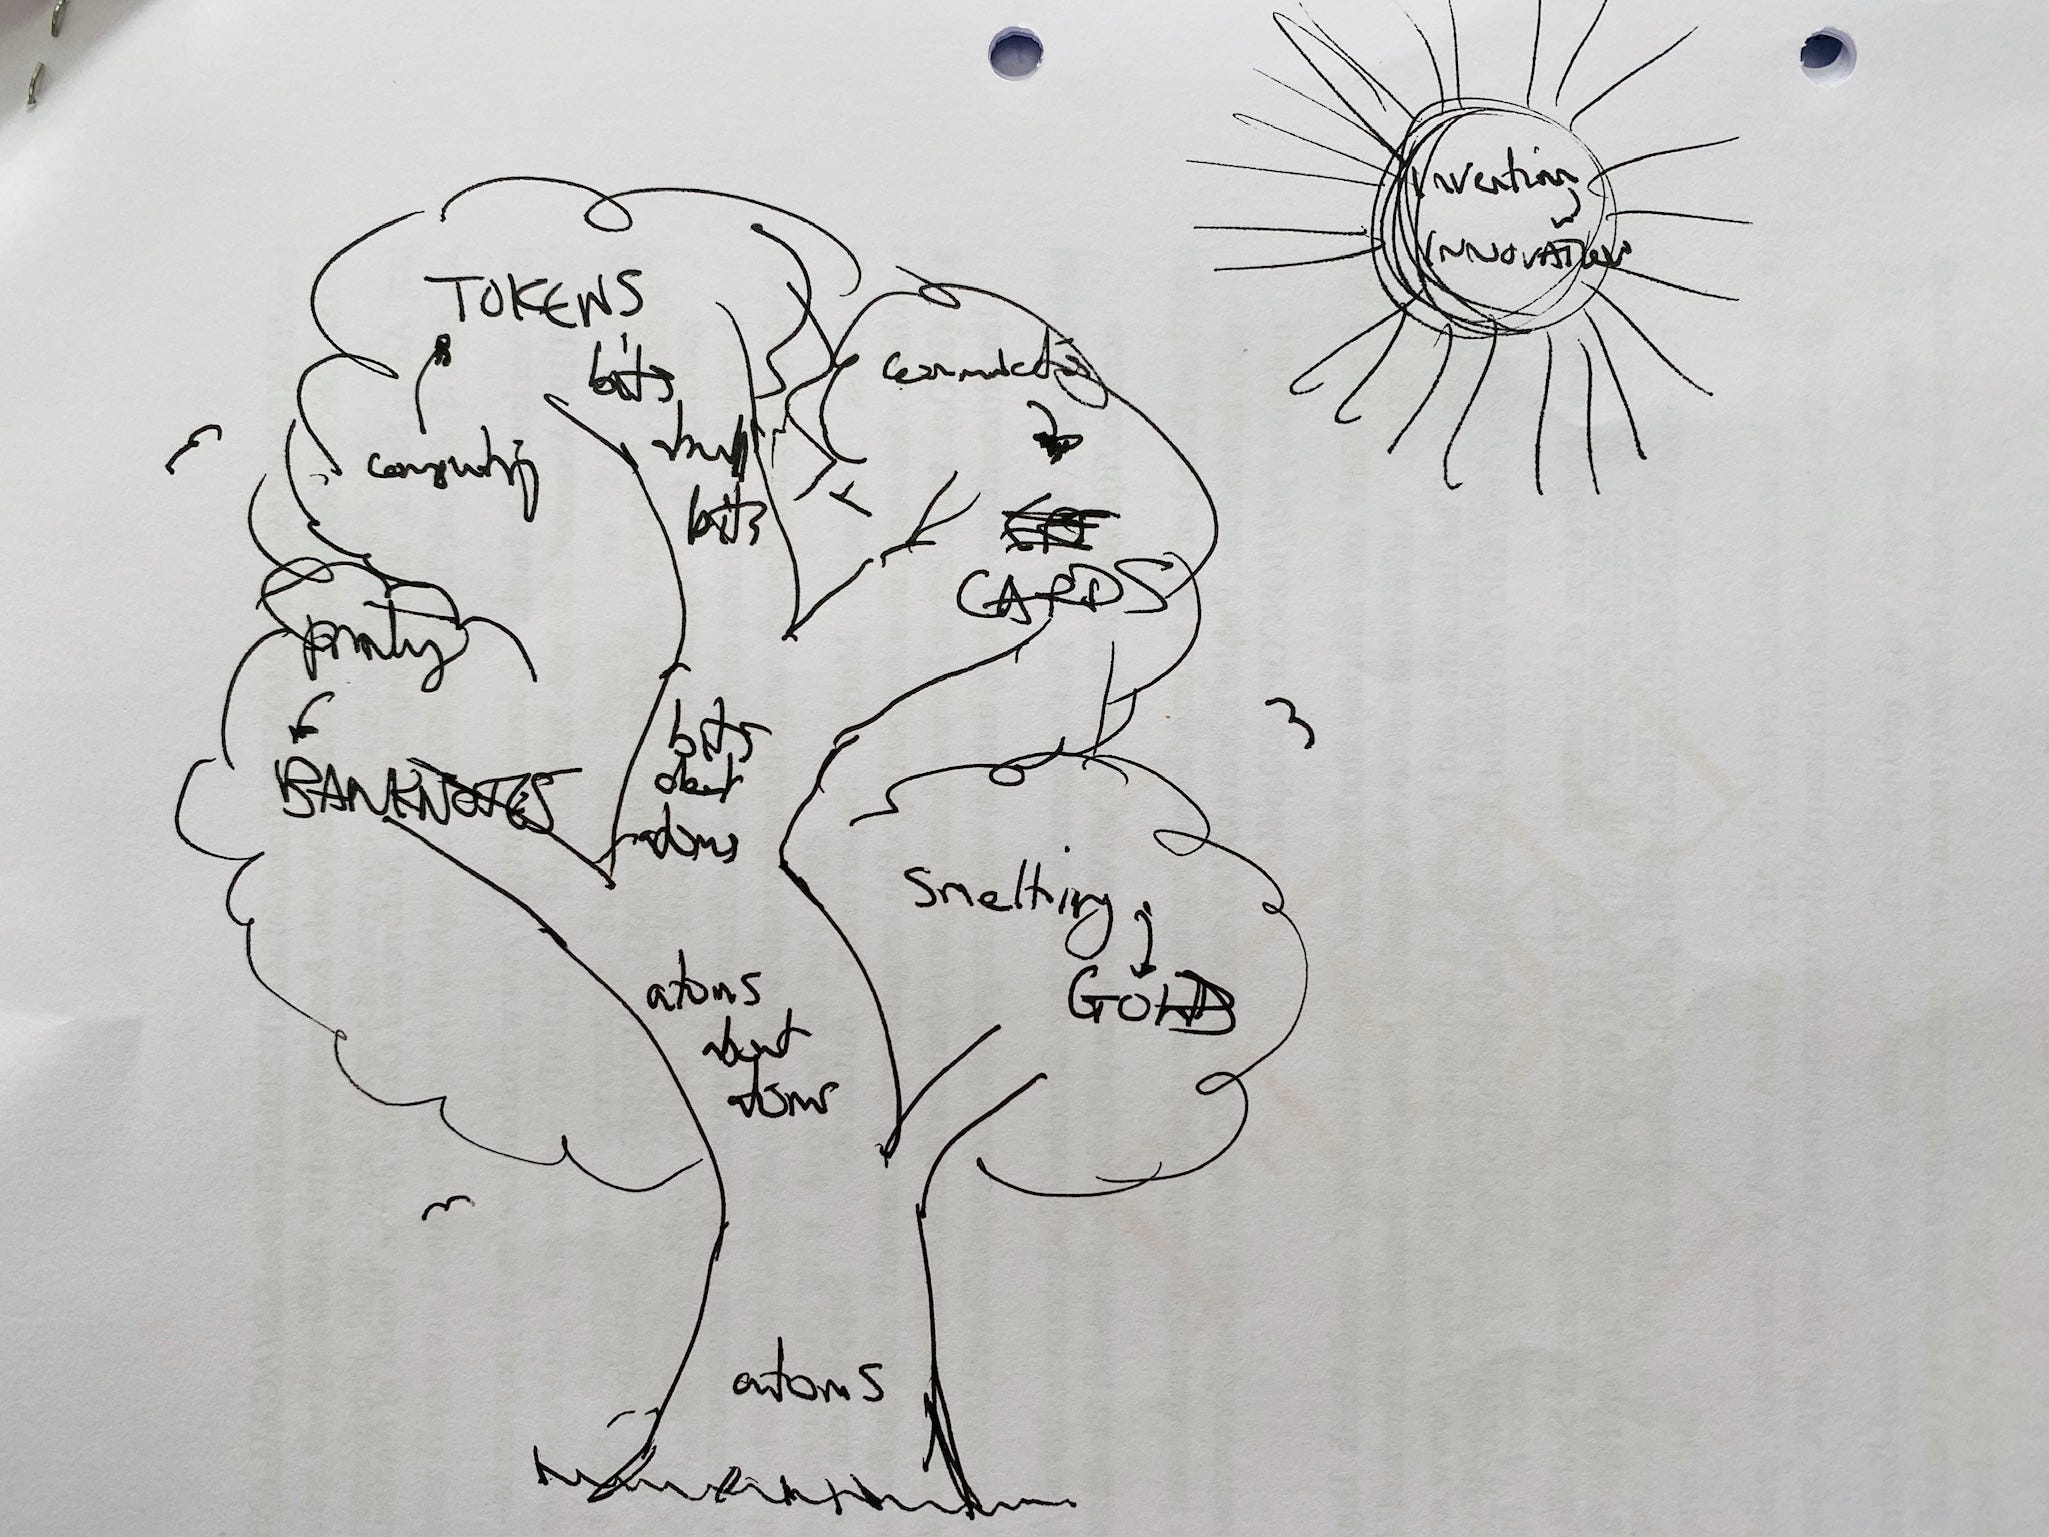 Inventing
INNOVATION
TOKENS
bits
about
bits
computing
connecting
CARDS
printing
BANKNOTES
bits
about
atoms
Smelting
GOLD
atoms
about
atoms
atoms